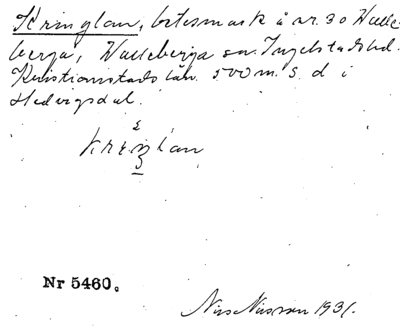 Kringlan, betesmark å nr. 30 Valle-
berga, Valleberga sn. Ingelstads hd.
Kristianstads län. 500 m. S. d i
Hedvigsdal.
Nr 5460.
Nils Nilsson 1931.